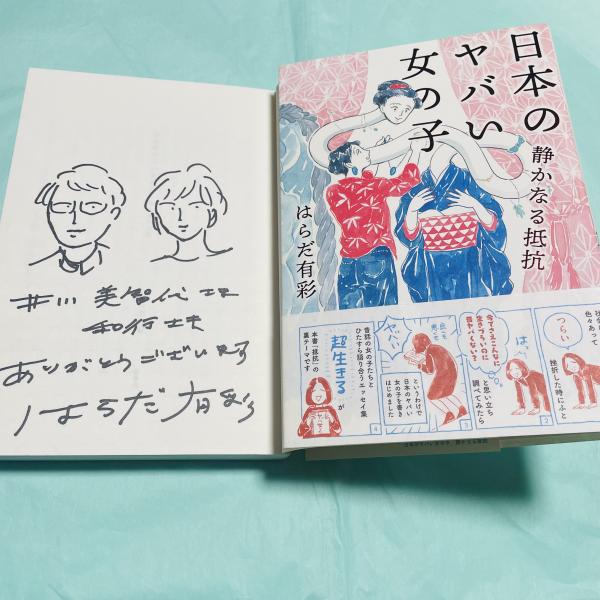 井川 美智代さま
和行さま
ありがとうございます
はらだ有彩
日本の
ヤバい
女の子
静かなる抵抗
はらだ有彩
色々あって
つらい
挫折した時にふと
はっ
今でさえこんなに
生きづらいのに
昔ヤバくない?
と思い立ち
調べてみたら
ヤバい
というわけで
日本のヤバい
女の子を書き
はじめました
昔話の女の子たちと
ひたすら語り合うエッセイ集
本書「抵抗」の
裏テーマです
超生きる
が
2
3
4